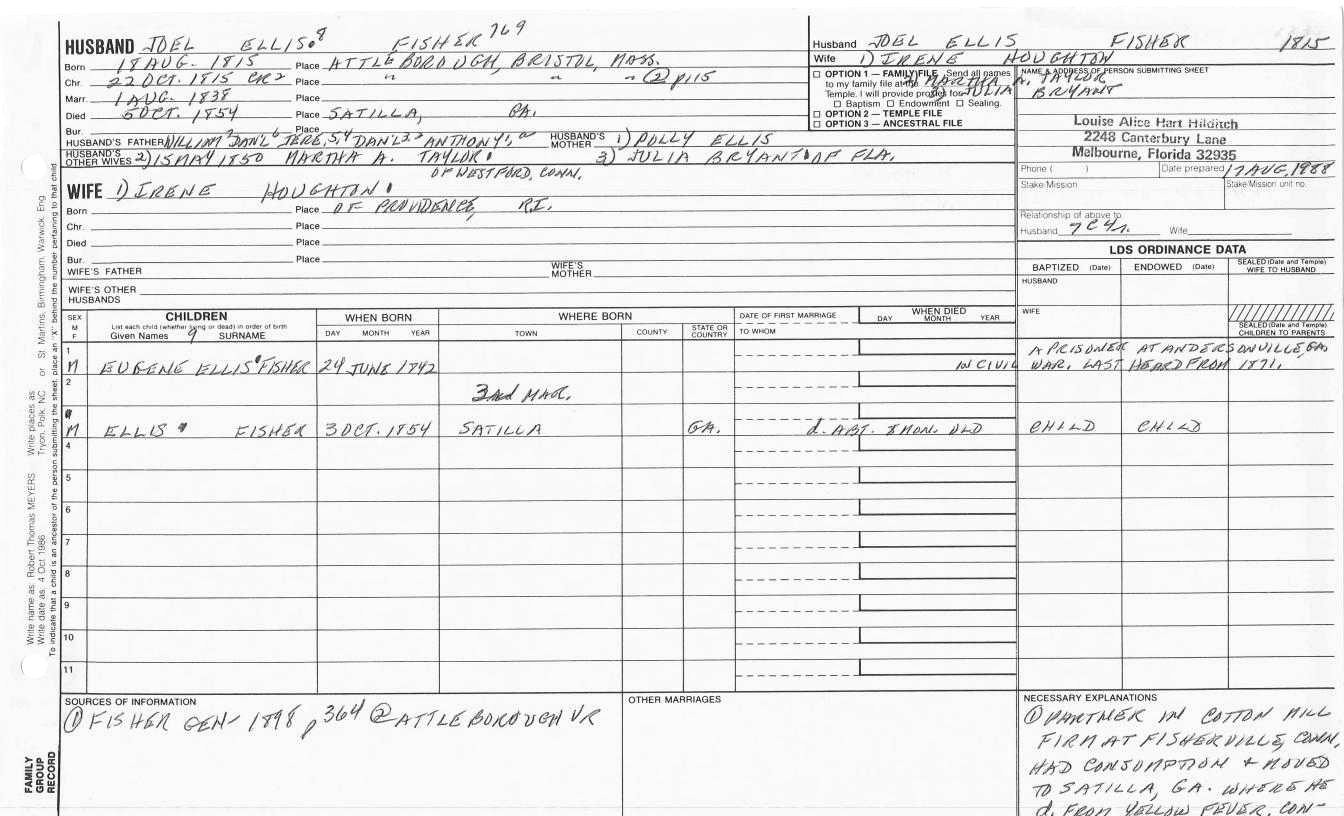 HUSBAND JOEL ELLIS.8 FISHER 769
Born 18 AUG. 1815 Place ATTLEBOROUGH, BRISTOL, MASS.
Chr. 22 OCT. 1815 CR2 Place " " " (2) p115
Marr. 1 AUG. 1838 Place
Died 5 OCT. 1854 Place SATILLA, GA.
Bur. Place
HUSBAND'S FATHER WILLIAM DAN'L6 JERE,5,4 DAN'L3,2 ANTHONY HUSBAND'S MOTHER 1) POLLY ELLIS
HUSBAND'S OTHER WIVES 2) 15 MAY 1850 MARTHA A. TAYLOR 3) JULIA BRYANT OF FLA.
OF WESTFORD, CONN.
WIFE 1) IRENE HOUGHTON
Born Place OF PROVIDENCE, R.I.
Chr. Place
Died Place
Bur. Place
WIFE'S FATHER WIFE'S MOTHER
WIFE'S OTHER HUSBANDS
Husband JOEL ELLIS FISHER 1815
Wife 1) IRENE HOUGHTON
2) MARTHA A. TAYLOR
3) JULIA BRYANT
☐ OPTION 1 — FAMILY FILE Send all names
to my family file at the
Temple. I will provide proxies for
☐ Baptism ☐ Endowment ☐ Sealing.
☐ OPTION 2 — TEMPLE FILE
☐ OPTION 3 — ANCESTRAL FILE
NAME & ADDRESS OF PERSON SUBMITTING SHEET
Louise Alice Hart Hilditch
2248 Canterbury Lane
Melbourne, Florida 32935
Phone ( ) Date prepared 17 AUG, 1988
Stake/Mission Stake/Mission unit no.
Relationship of above to:
Husband 7C4r. Wife
LDS ORDINANCE DATA
BAPTIZED (Date) ENDOWED (Date) SEALED (Date and Temple) WIFE TO HUSBAND
HUSBAND
WIFE
SEALED (Date and Temple) CHILDREN TO PARENTS
SEX M F
CHILDREN
List each child (whether living or dead) in order of birth
Given Names 9 SURNAME
WHEN BORN
DAY MONTH YEAR
WHERE BORN
TOWN COUNTY STATE OR COUNTRY
DATE OF FIRST MARRIAGE
TO WHOM
WHEN DIED
DAY MONTH YEAR
1 A PRISONER AT ANDERSONVILLE, GA.
M EUGENE ELLIS FISHER 24 JUNE 1842 IN CIVIL WAR. LAST HEARD FROM 1871.
2
3rd MAR.
M ELLIS FISHER 3 OCT. 1854 SATILLA GA. d. ABT. 8 MON. OLD CHILD CHILD
4
5
6
7
8
9
10
11
SOURCES OF INFORMATION
(1) FISHER GEN- 1898 p364 (2) ATTLEBOROUGH VR
OTHER MARRIAGES
NECESSARY EXPLANATIONS
(1) PARTNER IN COTTON MILL
FIRM AT FISHERVILLE, CONN,
HAD CONSUMPTION & MOVED
TO SATILLA, GA. WHERE HE
d. FROM YELLOW FEVER, CON-
Write name as: Robert Thomas MEYERS Write places as Tryon, Polk, NC or St. Martins, Birmingham, Warwick, Eng
Write date as: 4 Oct 1986
To indicate that a child is an ancestor of the person submitting the sheet, place an "X" behind the number pertaining to that child.
FAMILY
GROUP
RECORD